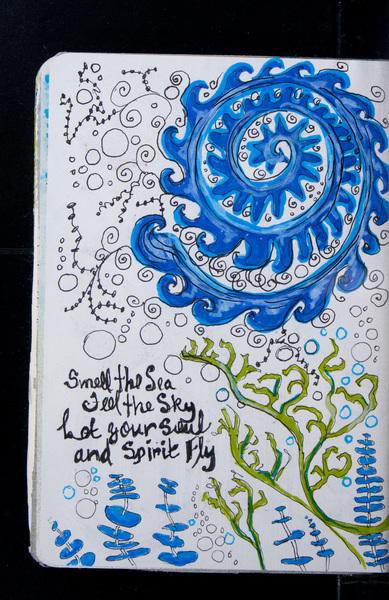 Smell the Sea
Feel the Sky
Let your Soul
and Spirit Fly